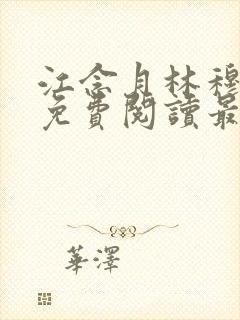 江念月林穆
免費閱讀最
華澤